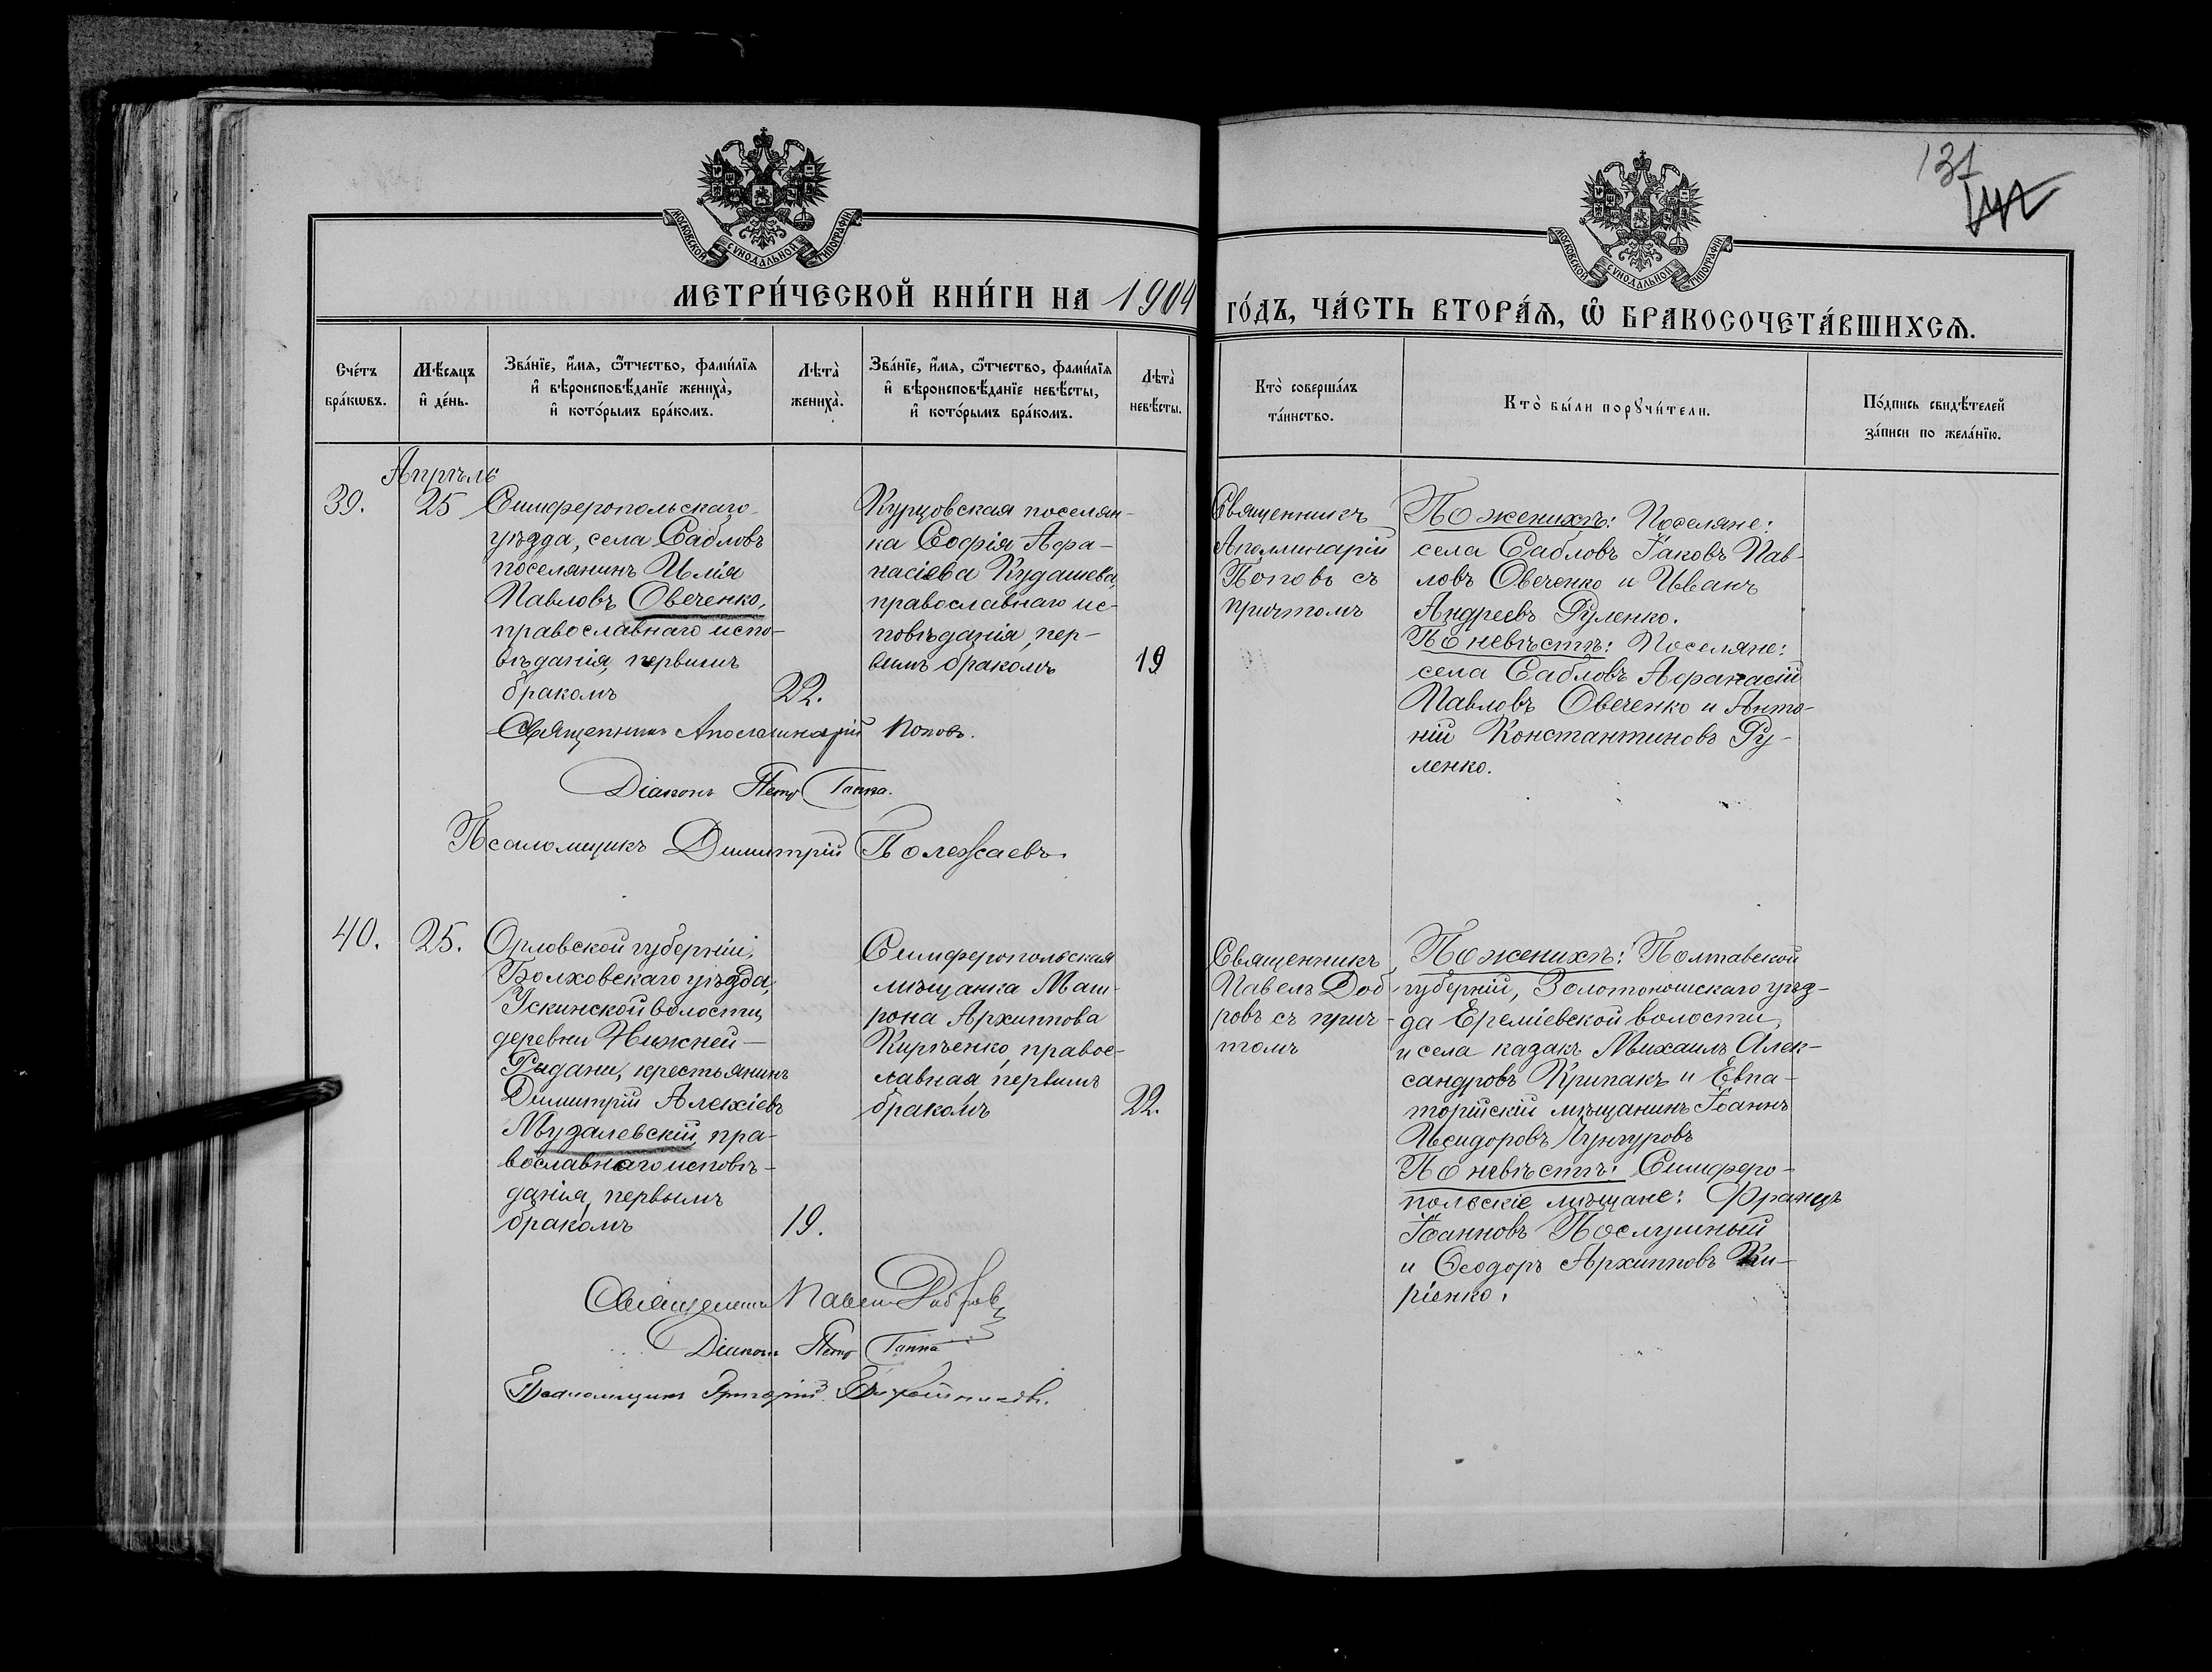 131
МОСКОВСКОЙ СѴНОДАЛЬНОЙ ТИПОГРАФІИ
МОСКОВСКОЙ СѴНОДАЛЬНОЙ ТИПОГРАФІИ
МЕТРИ́ЧЕСКОЙ КНИ́ГИ НА 1904 ГО́ДЪ, ЧА́СТЬ ВТОРА́Ѧ, Ѽ БРАКОСОЧЕТА́ВШИХСѦ.
Сче́тъ
бра́кωвъ.
Мѣ́сяцъ
и҆ де́нь.
Зва́нїе, и҆́мя, ѻ҆́тчество, фами́лїя
и҆ вѣроисповѣ́данїе жениха̀,
и҆ кото́рымъ бра́комъ.
Лѣта̀
жениха̀.
Зва́нїе, и҆́мя, ѻ҆́тчество, фами́лїя
и҆ вѣроисповѣ́данїе невѣ́сты,
и҆ кото́рымъ бра́комъ.
Лѣта̀
невѣ́сты.
Кто̀ соверша́лъ
та́инство.
Кто̀ бы́ли порꙋчи́тели.
По́дпись свидѣ́телей
за́писи по жела́нїю.
Апрѣль
39.
25
Симферопольскаго
уѣзда, села Сабловъ
поселянинъ Илія
Павловъ Овеченко,
православнаго испо-
вѣданія, первымъ
бракомъ
22.
Курцовская поселян-
ка Софія Афа-
насіева Кудашева,
православнаго ис-
повѣданія, пер-
вымъ бракомъ
19
Священникъ
Аполлинарій
Поповъ съ
причтомъ
По женихѣ: Поселяне:
села Сабловъ Іаковъ Пав-
ловъ Овеченко и Иванъ
Андреевъ Руленко.
По невѣстѣ: Поселяне:
села Сабловъ Афанасій
Павловъ Овеченко и Анто-
ній Константиновъ Ру-
ленко.
Священникъ Аполлинарій Поповъ.
Діаконъ Петр Таппа.
Псаломщикъ Димитрій Полежаевъ.
40.
25.
Орловской губерніи,
Болховскаго уѣзда,
Ускинской волости,
деревни Нижней-
Рыдани, крестьянинъ
Димитрій Алексіевъ
Мудалевскій, пра-
вославнаго исповѣ-
данія, первымъ
бракомъ
19.
Симферопольская
мѣщанка Мат-
рона Архиппова
Кирѣенко, правос-
лавная первымъ
бракомъ
22.
Священникъ
Павелъ Доб-
ровъ съ прич-
томъ
По женихѣ: Полтавской
губерніи, Золотоношскаго уѣз-
да Ереміевской волости,
и села казакъ Михаилъ Алек-
сандровъ Крипакъ и Евпа-
торійскій мѣщанинъ Іоаннъ
Исидоровъ
По невѣстѣ: Симферо-
польскіе мѣщане: Францъ
Іоанновъ Послушный
и Ѳеодоръ Архипповъ Ки-
ріенко.
Священникъ Павелъ Добровъ
Діаконъ Петр Таппа
Псаломщикъ Григорій